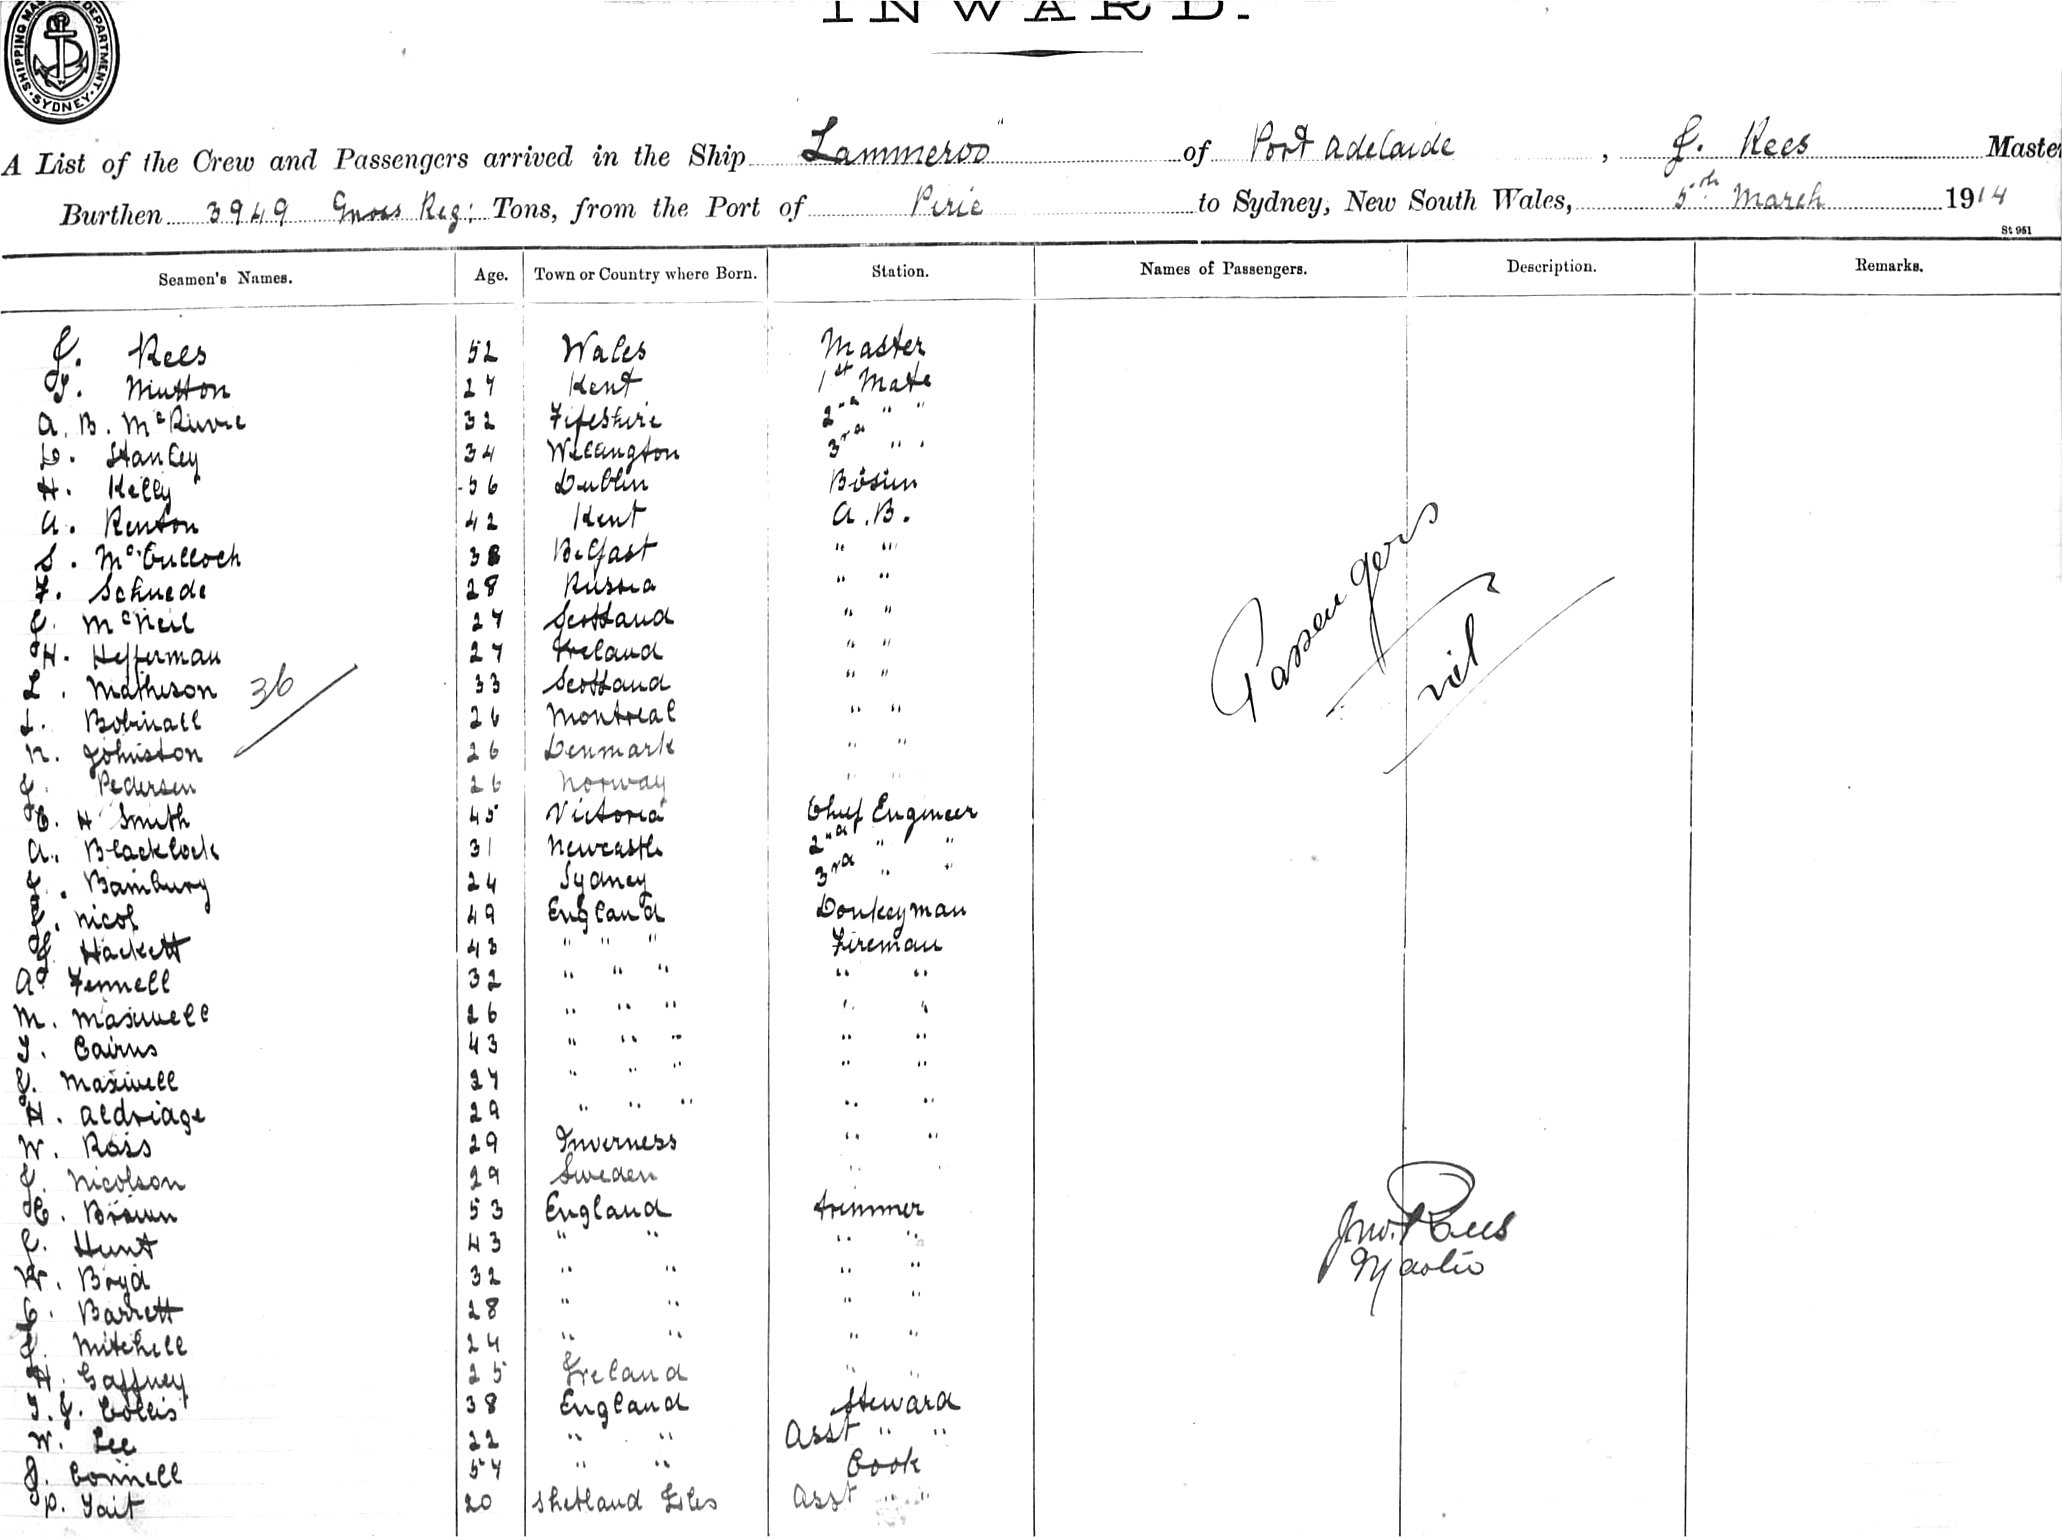 INWARD.
SHIPPING MASTER'S DEPARTMENT. SYDNEY.
A List of the Crew and Passengers arrived in the Ship Lammeroo of Port Adelaide, J. Rees Master
Burthen 3949 Gross Reg: Tons, from the Port of Pirie to Sydney, New South Wales, 5th March 1914
St 951
Seamen's Names. Age. Town or Country where Born. Station. Names of Passengers. Description. Remarks.
J. Rees 52 Wales Master
T. Mutton 27 Kent 1st Mate
A. B. McRuvie 32 Fifeshire 2nd " "
D. Stanley 34 Wellington 3rd " "
H. Kelly 56 Dublin Bosun
A. Renton 42 Kent A.B.
S. McCulloch 38 Belfast " "
F. Schuede 28 Russia " "
J. McNeil 27 Scotland " "
H. Hefferman 27 Ireland " "
L. Matheson 33 Scotland " "
36
L. Bobinall 26 Montreal " "
N. Johnston 26 Denmark " "
J. Pedersen 26 Norway " "
C. H Smith 45 Victoria Chief Engineer
A. Blacklock 31 Newcastle 2nd " "
J. Bambury 24 Sydney 3rd " "
J. Nicol 49 England Donkeyman
J. Hackett 43 " " " Fireman
A. Fennell 32 " " " " "
M. Maxwell 26 " " " " "
T. Cairns 43 " " " " "
J. Maxwell 27 " " " " "
H. Aldridge 29 " " " " "
W. Ross 29 Inverness " "
J. Nicolson 29 Sweden " "
C. Brown 53 England trimmer
J. Hunt 43 " " " "
W. Boyd 32 " " " "
C. Barrett 28 " " " "
J. Mitchell 24 " " " "
H. Gaffney 25 Ireland " "
T. J. Collis 38 England Steward
W. Lee 22 " " Asst " "
J. Connell 57 " " Cook
P. Tait 20 Shetland Isles Asst " "
Passengers
nil
Jno. Rees
Master